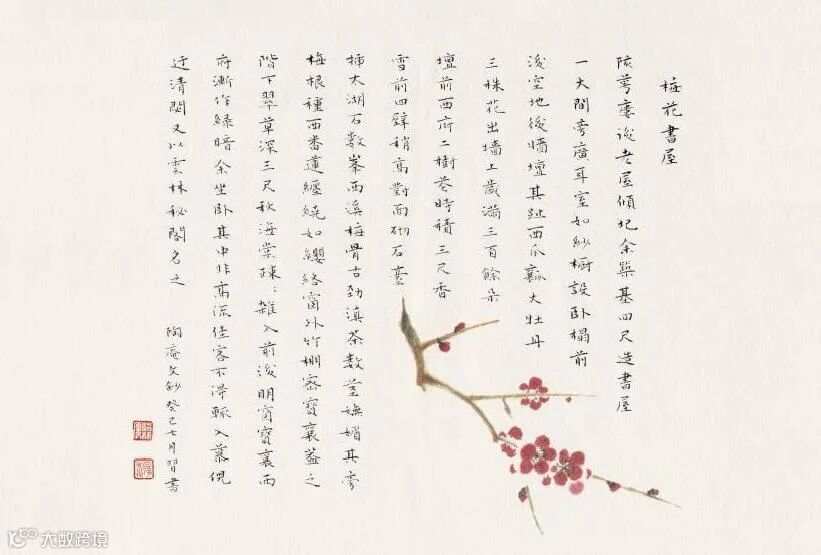 梅花書屋
陔萼樓後老屋傾圮余築基四尺造書屋
一大間旁廣耳室如紗橱設卧榻前
後空地後墻壇其趾西瓜瓤大牡丹
三株花出墻上歲滿三百餘朵
壇前西府二樹花時積三尺香
雪前四壁稍高對面砌石臺
插太湖石數峯西溪梅骨古勁滇茶數莖嫵媚其旁
梅根種西番蓮纏繞如纓絡窗外竹棚密寶襄蓋之
階下翠草深三尺秋海棠疎:雜入前後明窗寶襄西
府漸作綠暗余坐卧其中非高流佳客不得輒入慕倪
迂清閟又以雲林秘閣名之
陶庵文鈔癸巳七月習書
大数跨境